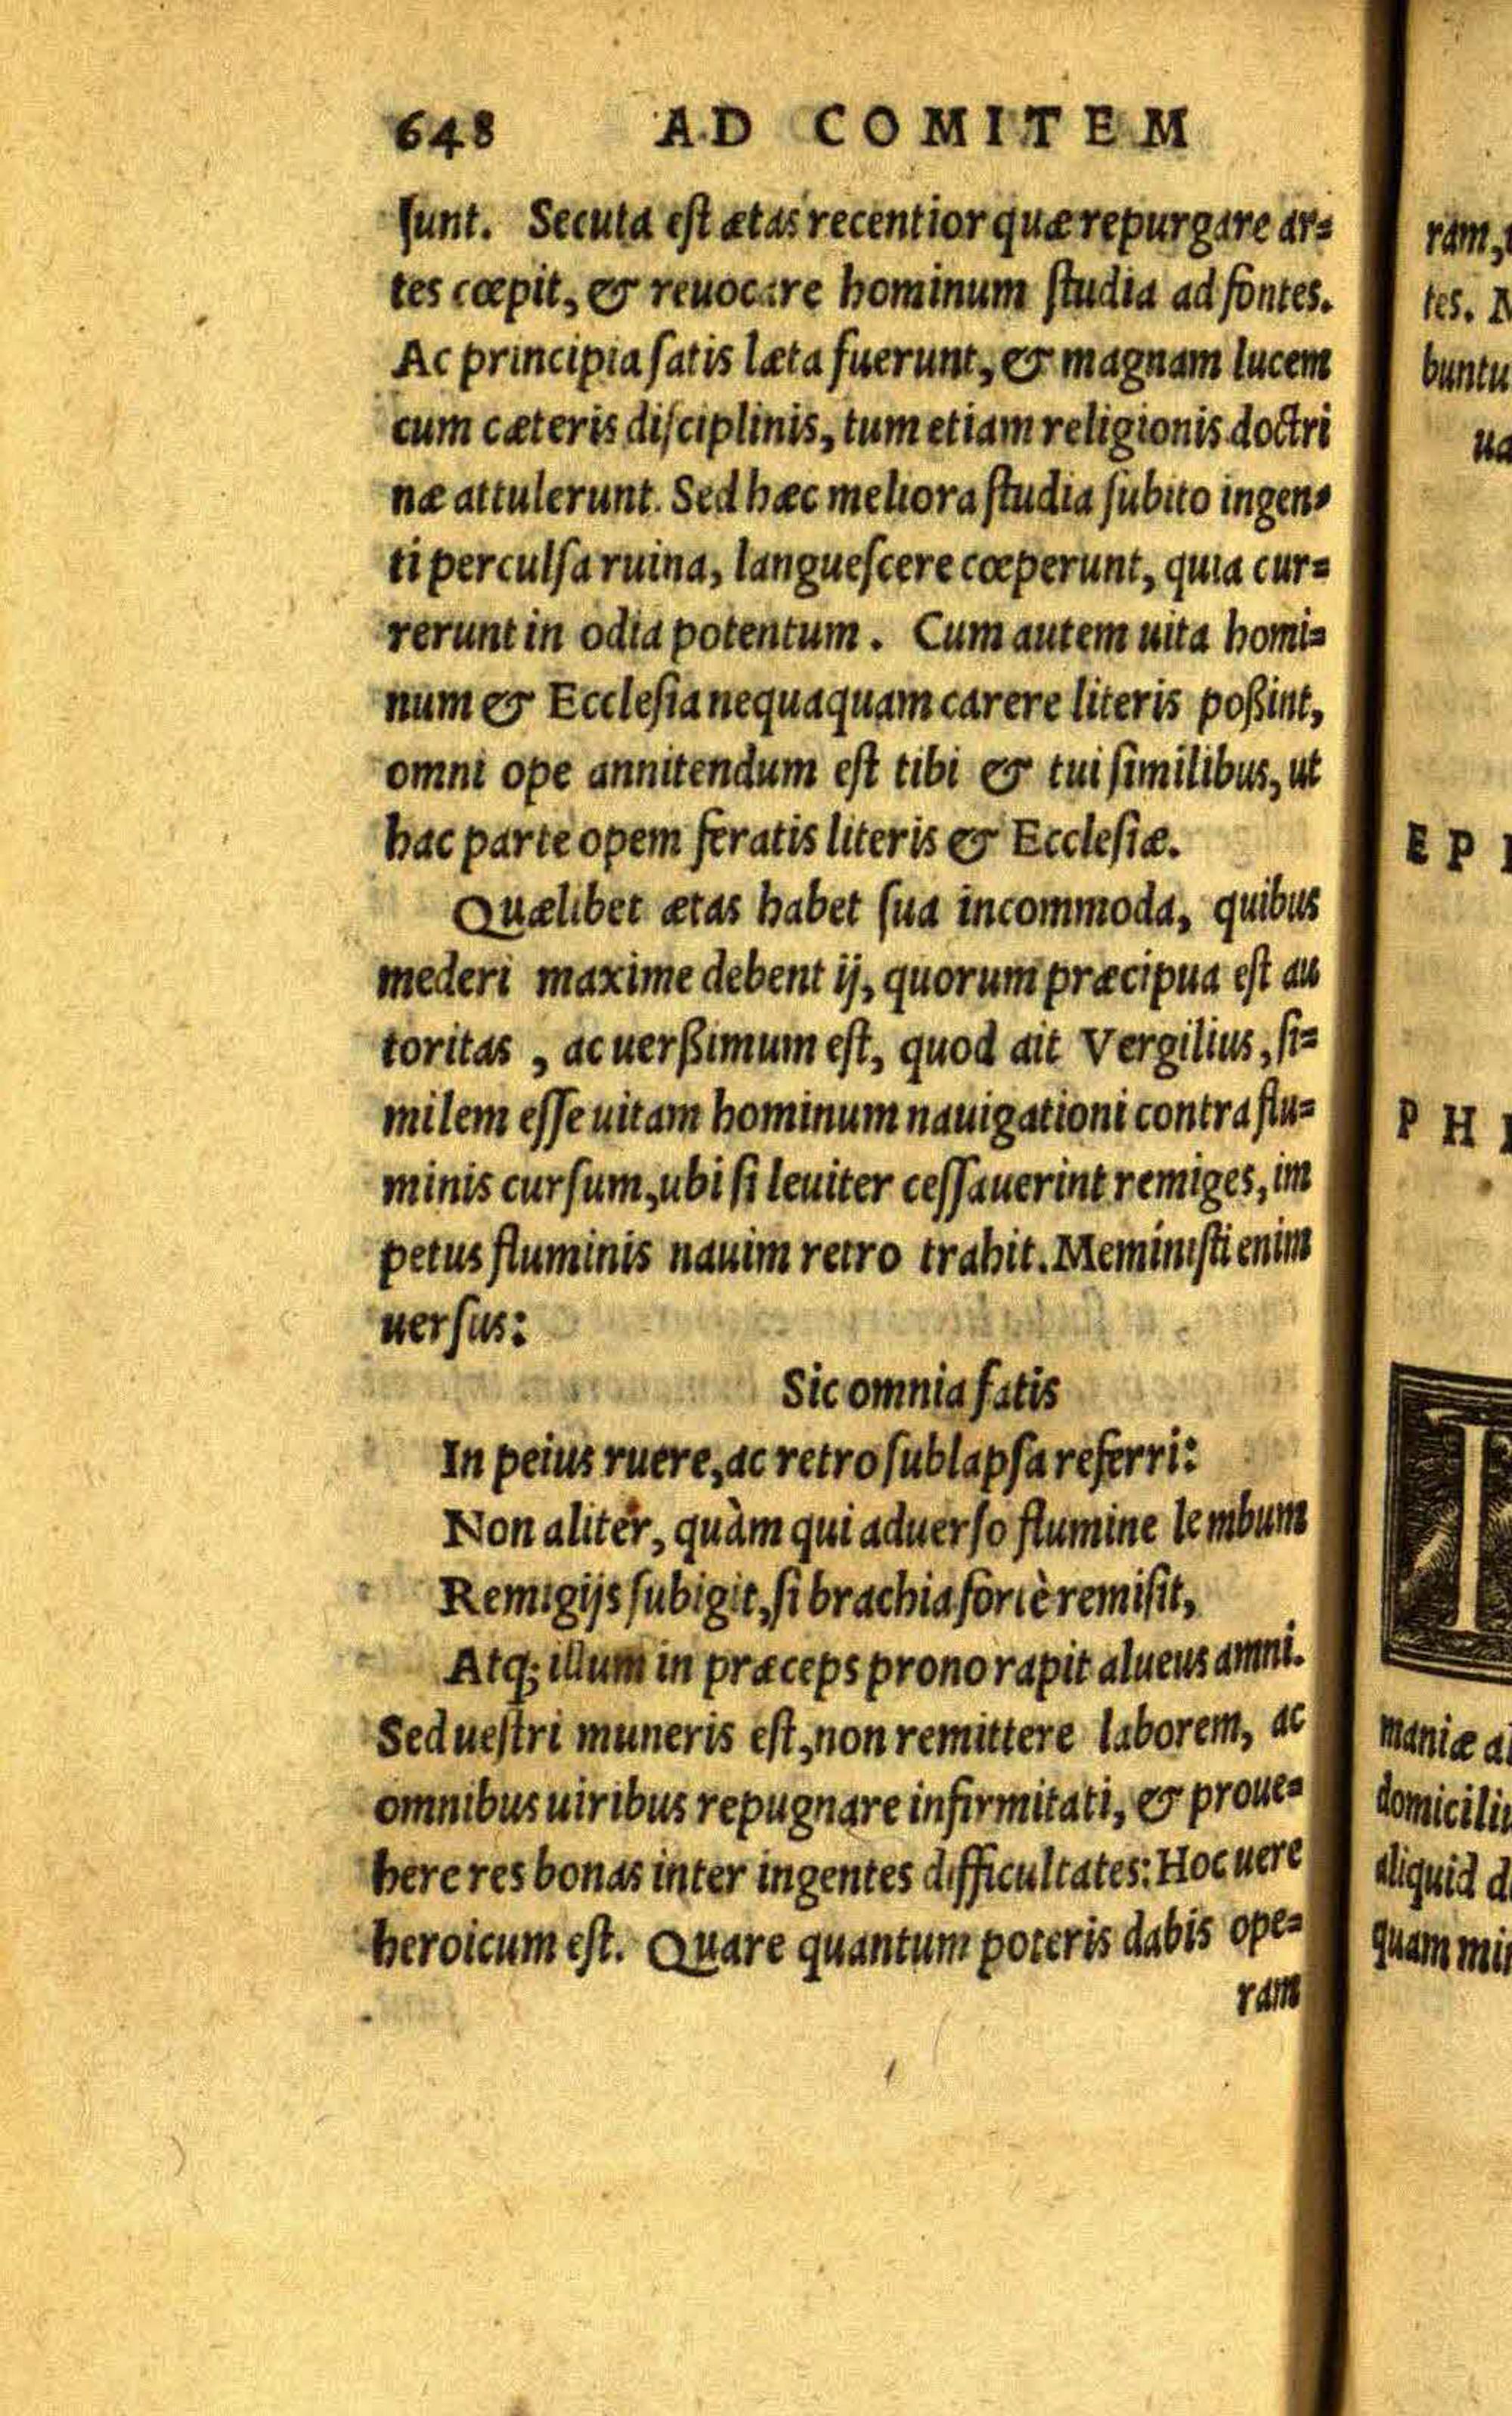 648 AD COMITEM
sunt. Secuta est ætas recentior quæ repurgare ar=
tes cœpit, & reuocare hominum studia ad fontes.
Ac principia satis læta fuerunt, & magnam lucem
cum cæteris disciplinis, tum etiam religionis doctri
næ attulerunt. Sed hæc meliora studia subito ingen=
ti perculsa ruina, languescere cœperunt, quia cur=
rerunt in odia potentum. Cum autem uita homi=
num & Ecclesia nequaquam carere literis poßint,
omni ope annitendum est tibi & tui similibus, ut
hac parte opem feratis literis & Ecclesiæ.
Quælibet ætas habet sua incommoda, quibus
mederi maxime debent ij, quorum præcipua est au
toritas, ac uerßimum est, quod ait Vergilius, si=
milem esse uitam hominum nauigationi contra flu=
minis cursum, ubi si leuiter cessauerint remiges, im
petus fluminis nauim retro trahit. Meministi enim
uersus:
Sic omnia fatis
In peius ruere, ac retro sublapsa referri:
Non aliter, quàm qui aduerso flumine lembum
Remigijs subigit, si brachia fortè remisit,
Atq; illum in præceps prono rapit alueus amni.
Sed uestri muneris est, non remittere laborem, ac
omnibus uiribus repugnare infirmitati, & proue=
here res bonas inter ingentes difficultates: Hoc uere
heroicum est. Quare quantum poteris dabis ope=
ram
ram,
tes.
buntu
ua
EP
PH
maniæ
domiciliu
aliquid
quam